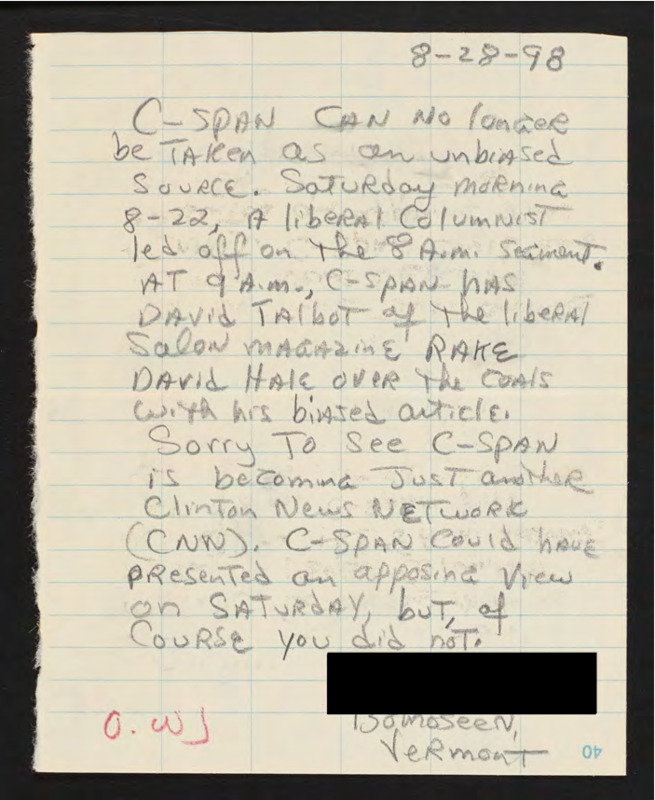 8-28-98
C-SPAN CAN No longer
be TAKen as an unbiased
Source. Saturday morning
8-22, A liberal Columnist
led off on the 8 A.m. segment.
AT 9 A.m., C-SPAN HAS
DAVid TAlboT of The liberAl
Salon magazine RAKE
DAVid HAle over the coals
with his biased article.
Sorry To See C-SPAN
is becoming Just another
Clinton News NETWORK
(CNN). C-SPAN Could have
presented an apposing View
on SATURDAY, but, of
COURSE you did not.
Bomoseen,
Vermont
O. WJ
40